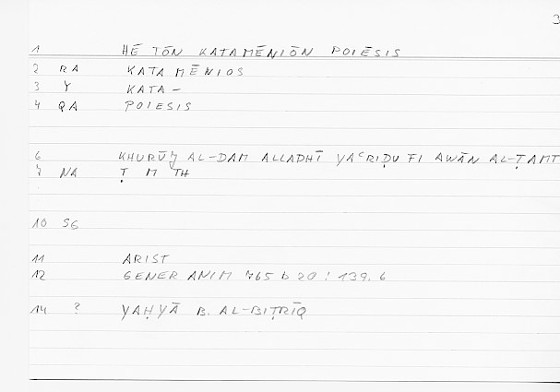 3
1 HĒ TŌN KATAMĒNIŌN POIĒSIS
2 RA KATAMĒNIOS
3 Y KATA-
4 QA POIESIS
6 KHURŪǦ AL-DAM ALLADHĪ YAʿRIḌU FI AWĀN AL-ṬAMT
7 NA Ṭ M TH
10 SG
11 ARIST
12 GENER ANIM 765 b 20 : 139, 6
14 ? YAḤYĀ B. AL-BIṬRĪQ